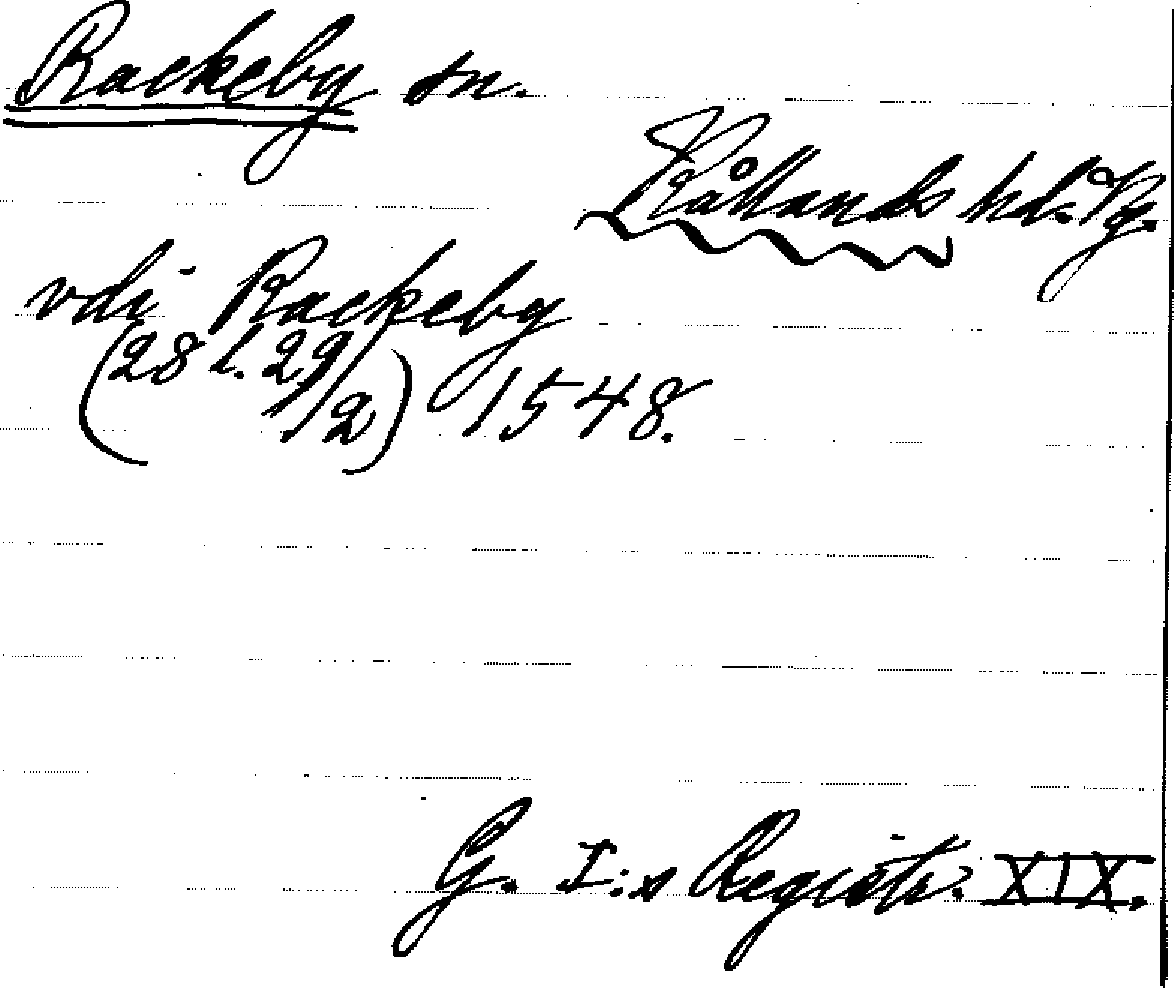 Rackeby sn.
Kållands hd. Vg.
vdi Rackeby
(28 l. 29/2) 1548.
G. I:s Registr. XIX.